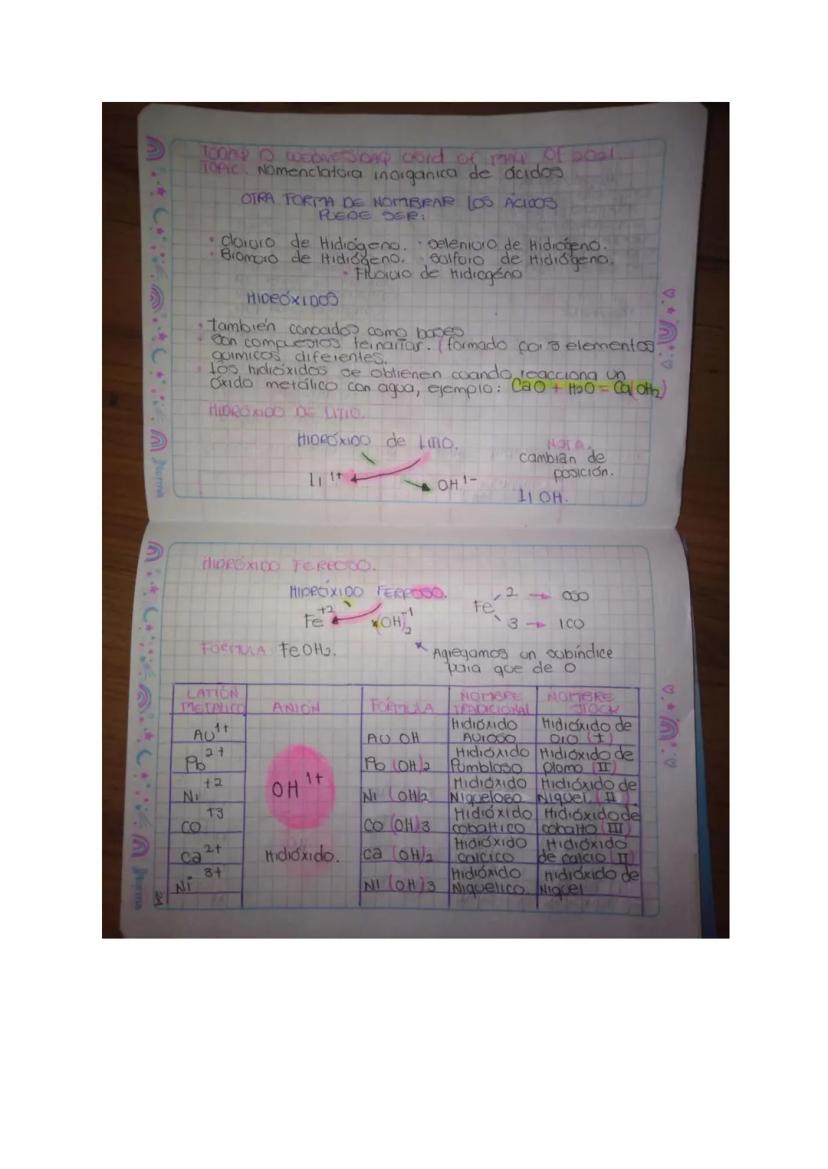 TODAY IS WEDNESDAY 03rd OF MAY OF 2021.
TOPIC: Nomenclatura inorganica de ácidos
OTRA FORMA DE NOMBRAR LOS ÁCIDOS
PUEDE SER:
• Cloruro de Hidrógeno. • Selenioro de Hidrógeno.
• Bromuro de Hidrógeno. • Sulfuro de Hidrógeno.
• Fluoruro de Hidrogéno
HIDRÓXIDOS
• También conocidos como bases
• Son compuestos ternarios. (formado por 3 elementos
químicos diferentes.
• Los hidróxidos se obtienen cuando reacciona un
óxido metálico con agua, ejemplo: CaO + H2O = Ca(OH2)
HIDRÓXIDO DE LITIO.
HIDRÓXIDO de LITIO.
NOTA.
cambian de
posición.
Li 1+
OH 1-
Li OH.
Norma
HIDRÓXIDO FERROSO.
HIDRÓXIDO FERROSO.
Fe +2 (OH)2 -1
Fe 2 → OSO
3 → ICO
FORMULA FeOH2.
* Agregamos un subíndice
para que de 0
CATIÓN METALICO ANIÓN FÓRMULA NOMBRE TRADICIONAL NOMBRE STOCK
Au 1+ Au OH Hidróxido Auroso Hidróxido de Oro (I)
Pb 2+ Pb (OH)2 Hidróxido Plumbloso Hidróxido de plomo (II)
Ni +2 OH 1+ Ni (OH)2 Hidróxido Niqueloso Hidróxido de Niquel (II)
CO +3 CO (OH)3 Hidróxido cobaltico Hidróxido de cobalto (III)
Ca 2+ Hidróxido. Ca (OH)2 Hidróxido calcico Hidróxido de calcio (II)
Ni 3+ Ni (OH)3 Hidróxido Niquelico Hidróxido de Niquel
Norma